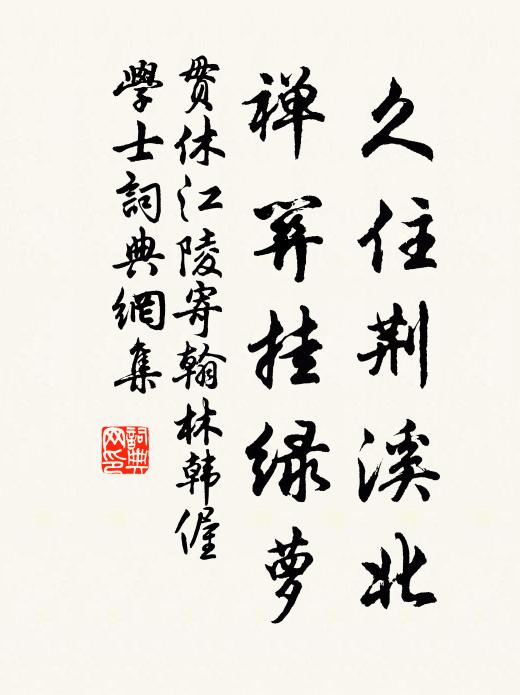 久住荆溪北
禅关挂绿萝
貫休江陵寄翰林韩偓
學士詞典網集
詞典
网印